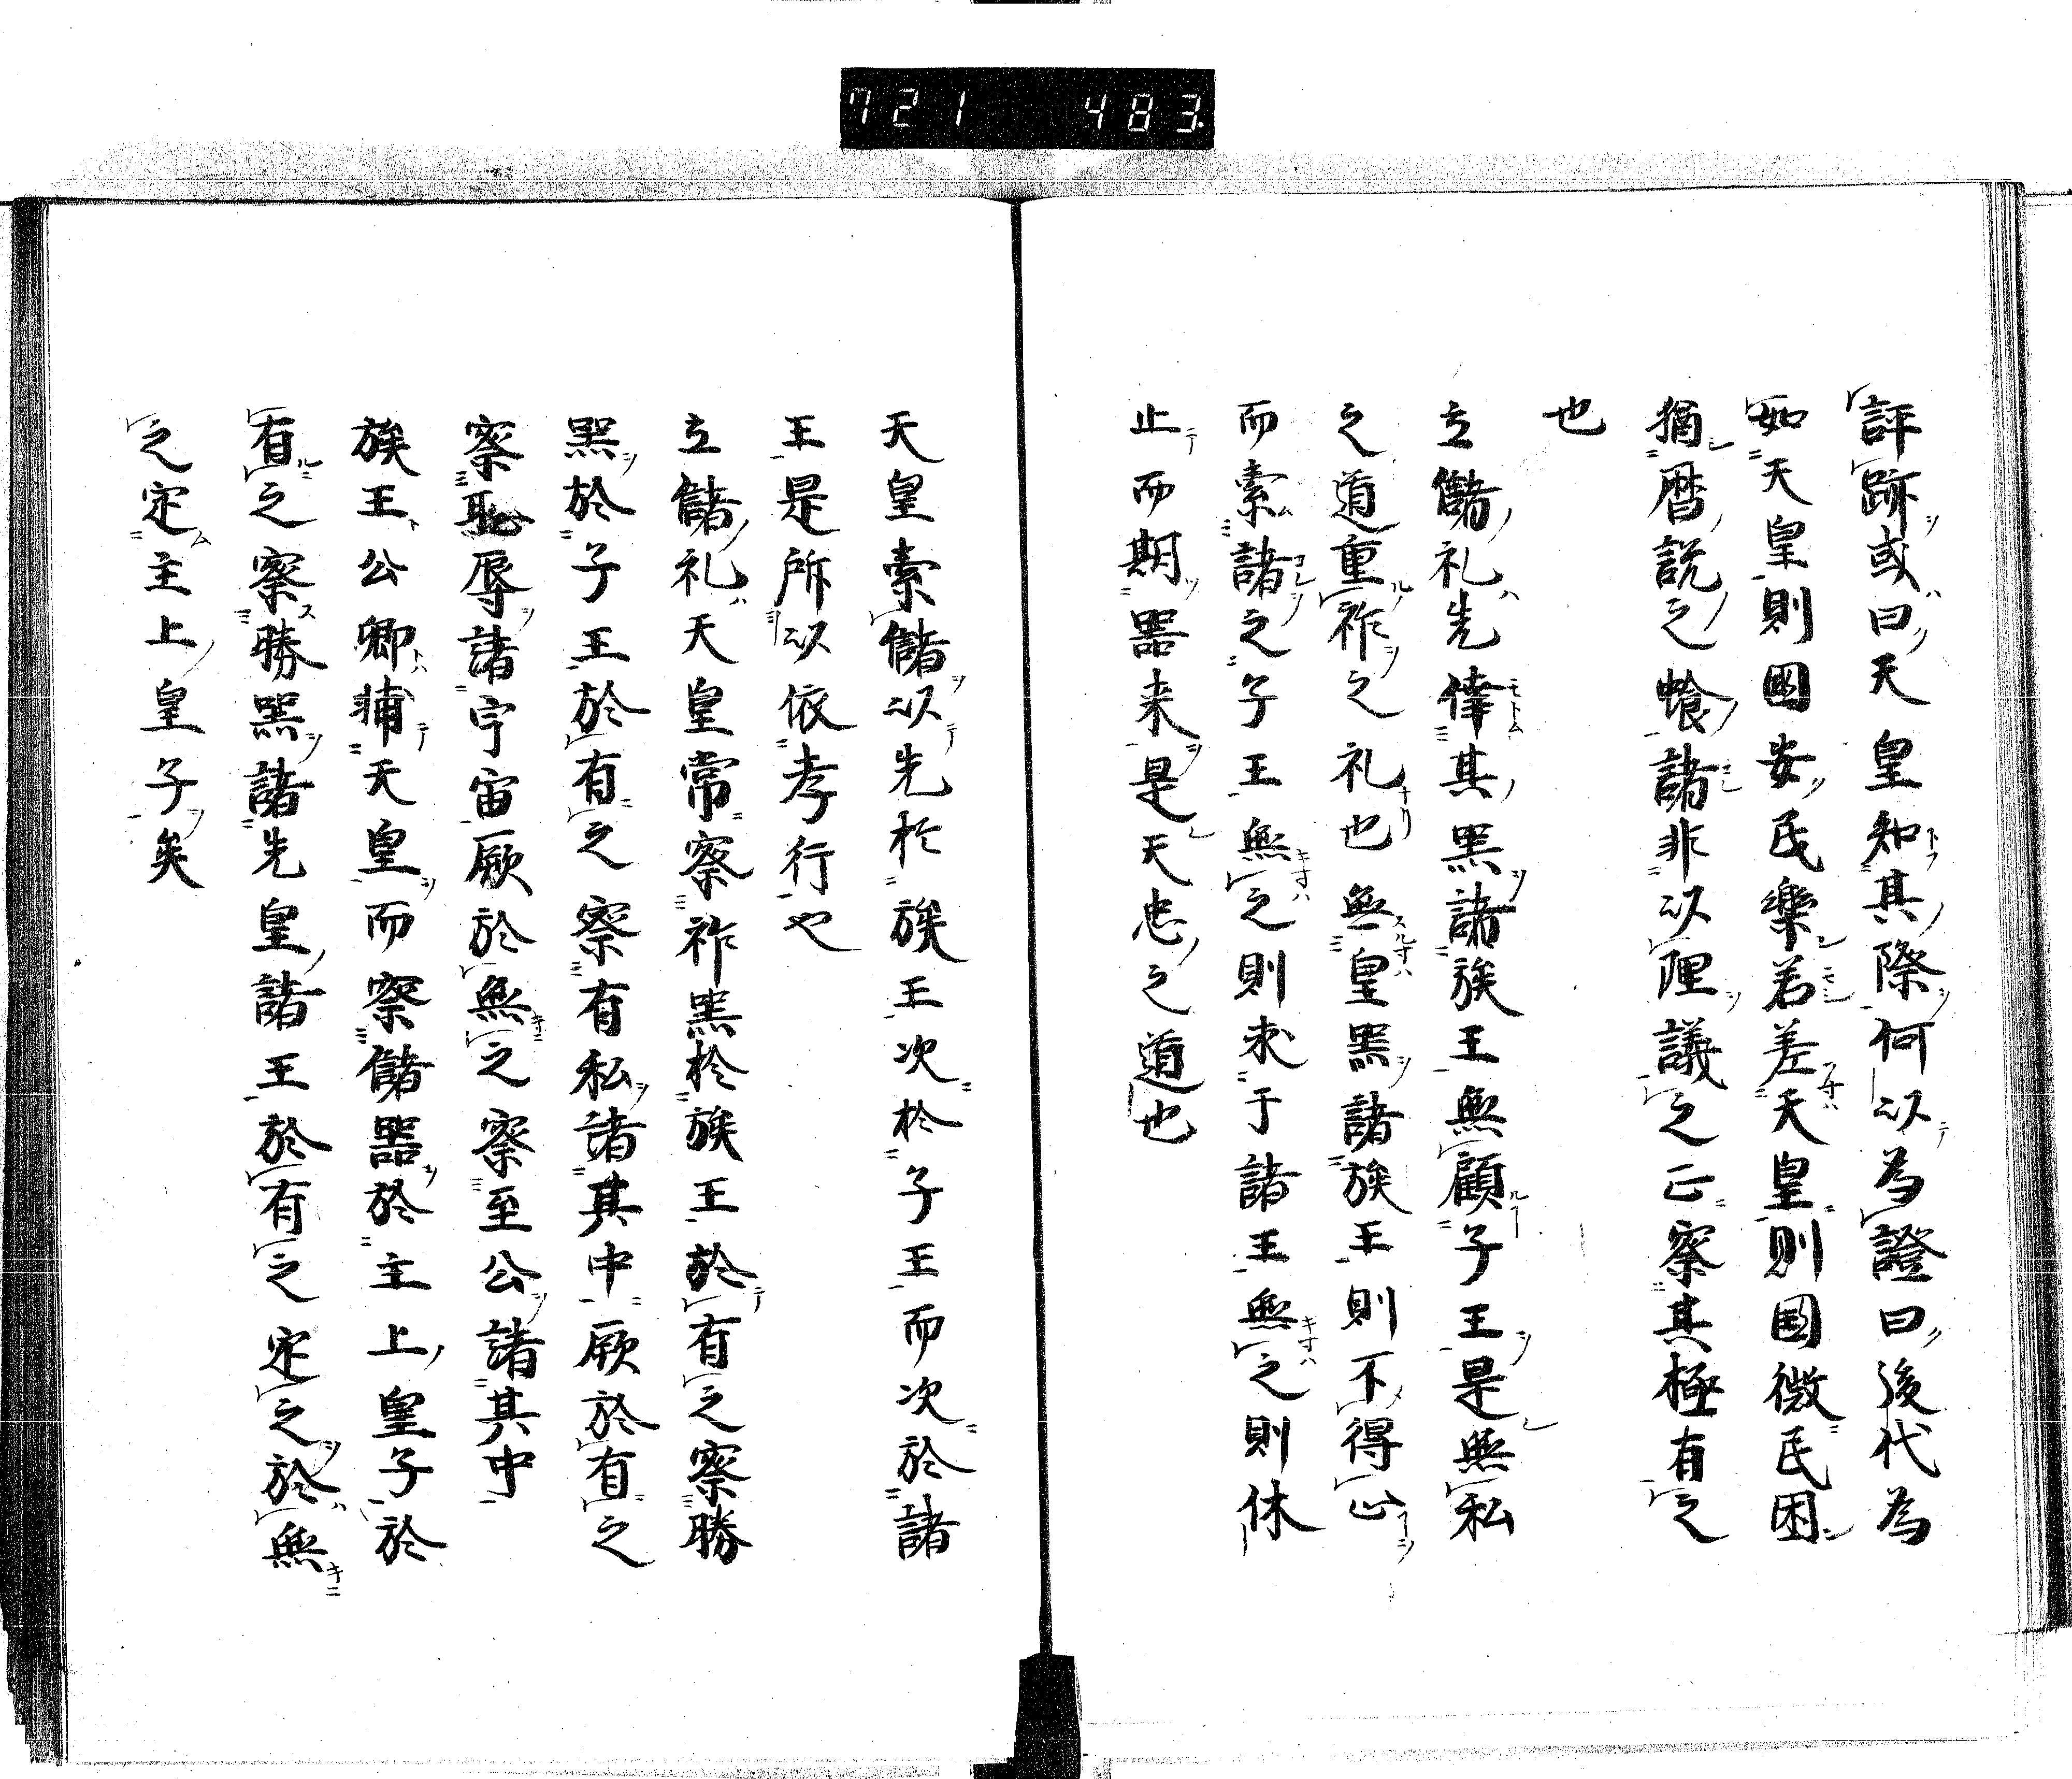 721 483.
評跡或曰天皇知其際何以為證曰後代為
如天皇則國安民樂若差天皇則國微民困
猶暦説之蝕諸非以理議之正察其極有之
也
立儲礼先倖其器諸族王無顧子王是無私
之道重祚之礼也無皇器諸族王則不得心
而索諸之子王無之則求于諸王無之則休
止而期器来是天忠之道也
天皇索儲以先於族王次於子王而次於諸
王是所以依孝行也
立儲礼天皇常察祚器於族王於有之察勝
器於子王於有之察有私諸其中厥於有之
察恥辱諸宇宙厥於無之察至公諸其中
族王公卿輔天皇而察儲器於主上皇子於
有之察勝器諸先皇諸王於有之定之於無
之定主上皇子矣